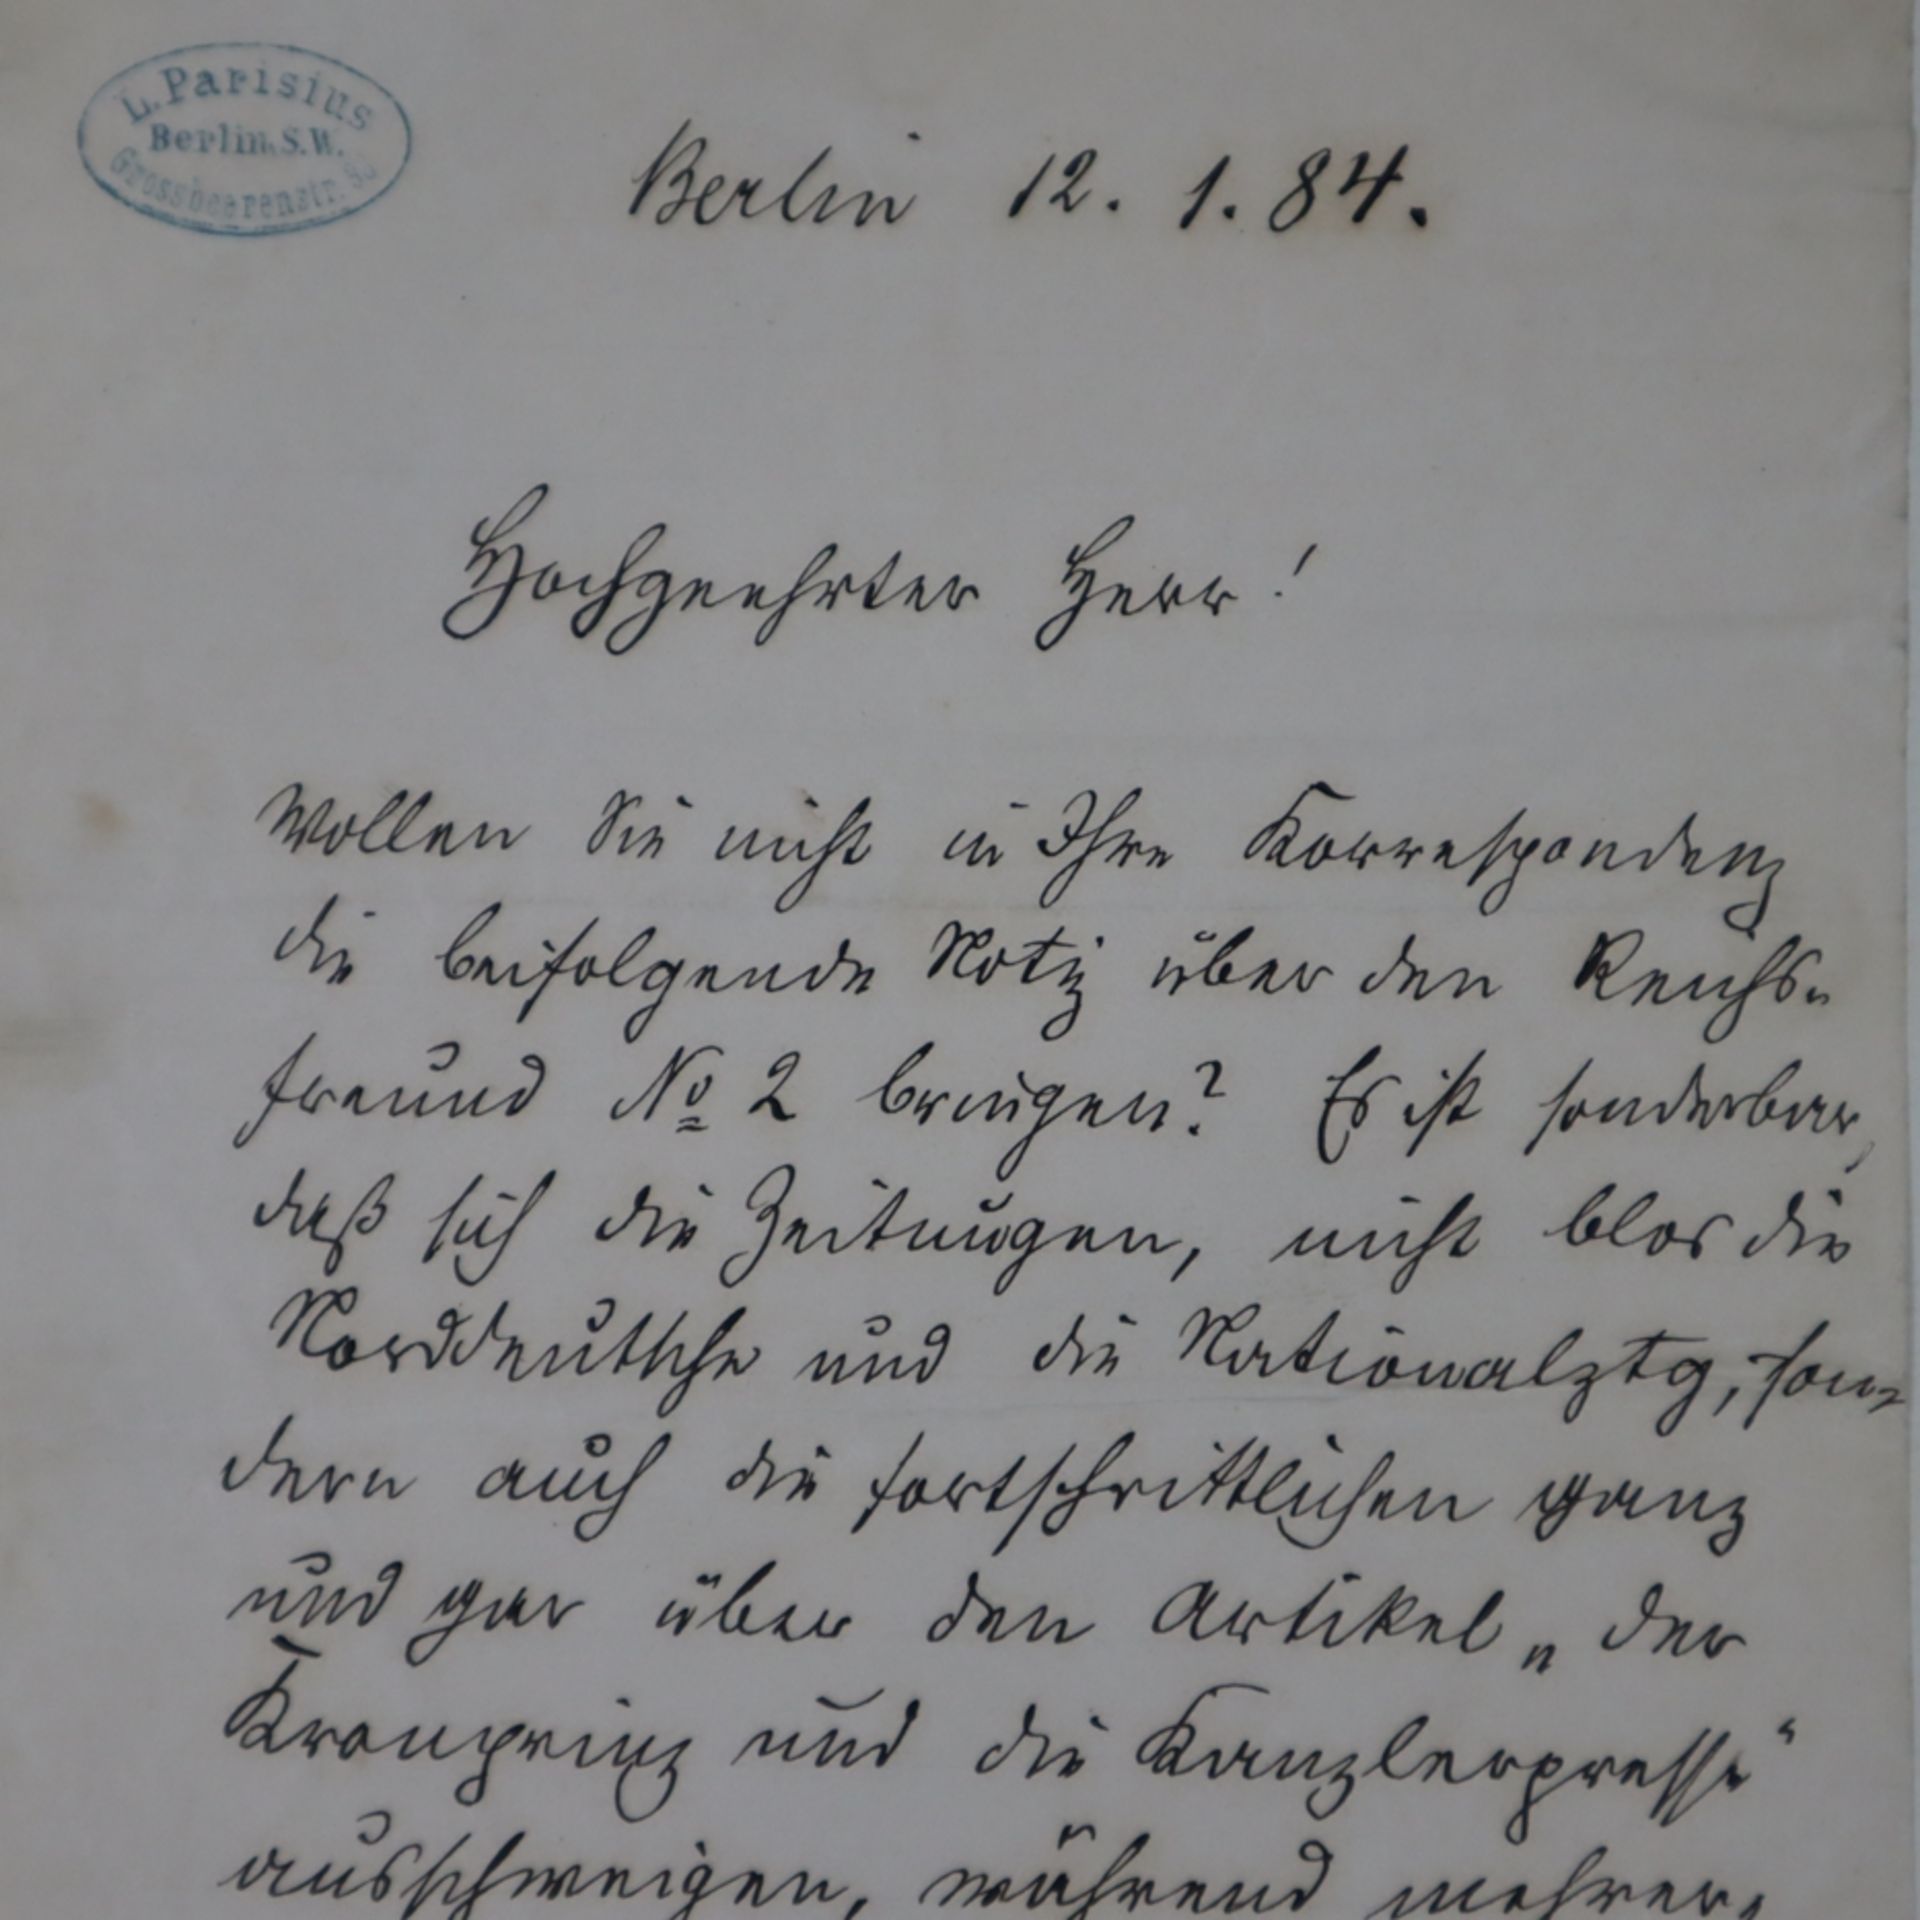 L. Parisius
Berlin. S.W.
Grossbeerenstr.
Berlin 12. 1. 84.
Hochgeehrter Herr!
Wollen Sie nicht in Ihre Korrespondenz
die beifolgende Notiz über den Reichs-
freund No 2 bringen? Es ist sonderbar,
daß sich die Zeitungen, nicht blos die
Norddeutsche und die Nationalztg, son-
dern auch die fortschrittlichen ganz
und gar über den Artikel „der
Kronprinz und die Kanzlerpresse“
ausschweigen, während mehrer.